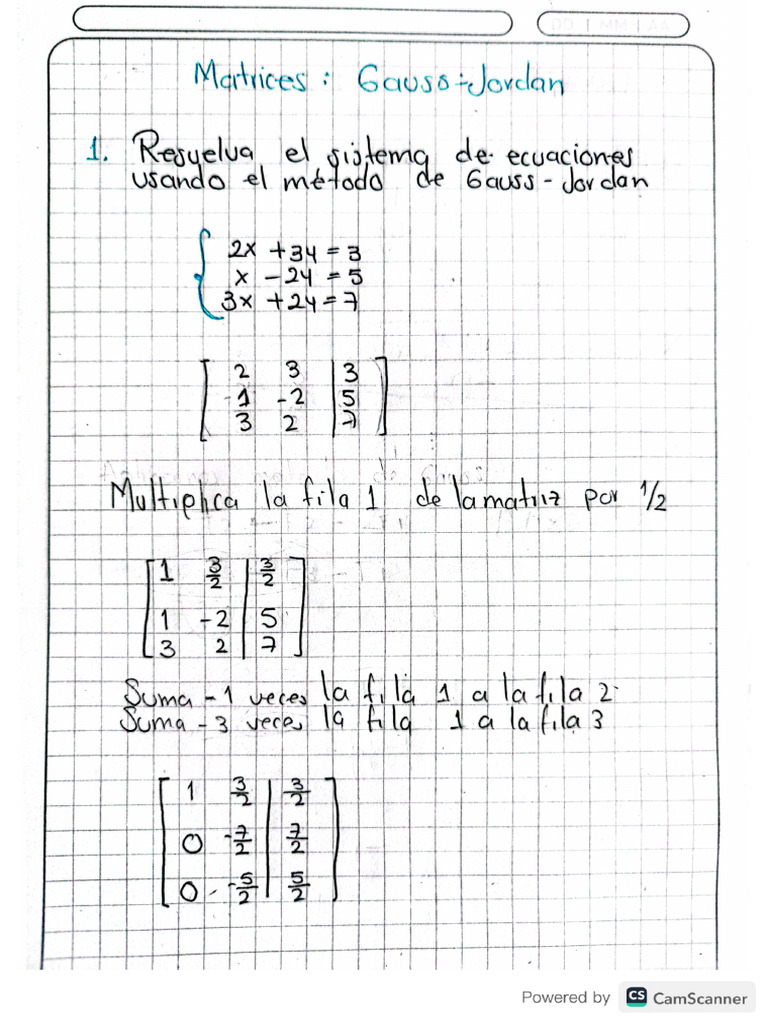 DD | MM | AA
Matrices : Gauss-Jordan
1. Resuelva el sistema de ecuaciones
usando el método de Gauss-Jordan
2x + 3y = 3
x - 2y = 5
3x + 2y = 7
2 3 | 3
1 -2 | 5
3 2 | 7
Multiplica la fila 1 de la matriz por 1/2
1 3/2 | 3/2
1 -2 | 5
3 2 | 7
Suma -1 veces la fila 1 a la fila 2
Suma -3 veces la fila 1 a la fila 3
1 3/2 | 3/2
0 -7/2 | 7/2
0 -5/2 | 5/2
Powered by CS CamScanner